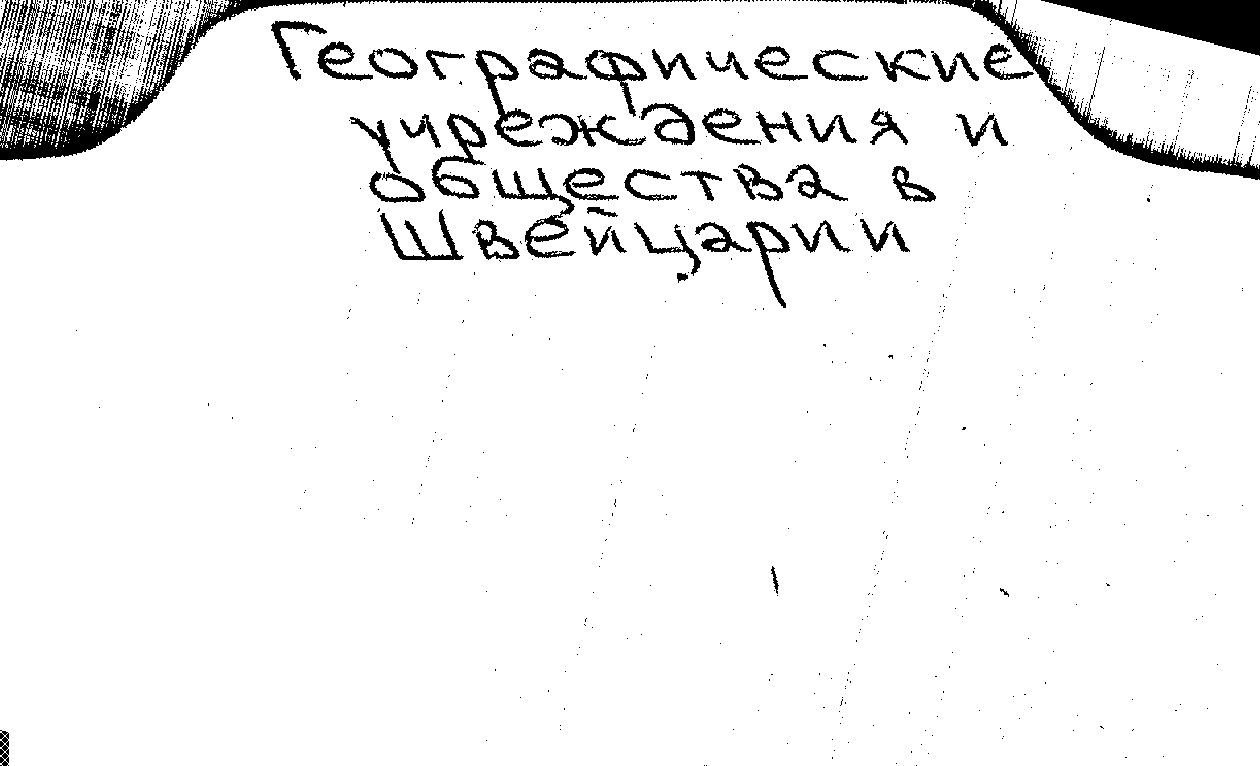 Географические
учреждения и
общества в
Швейцарии